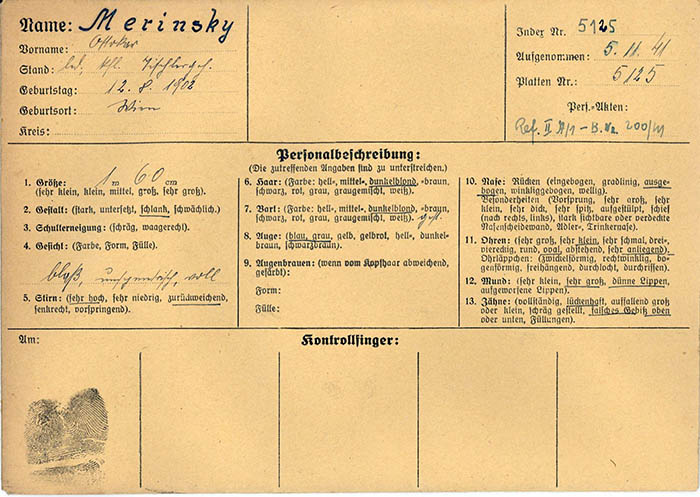 Name: Merinsky
Vorname: Ottokar
Stand: led., kfl., Tischlergeh.
Geburtstag: 12. 8. 1902
Geburtsort: Wien
Kreis:
Index Nr. 5125
Aufgenommen: 5. 11. 41
Platten Nr.: 5125
Pers.-Akten:
Ref. II A/1 - B. Nr. 200/41
Personalbeschreibung:
(Die zutreffenden Angaben sind zu unterstreichen.)
1. Größe: 1 m 60 cm
(sehr klein, klein, mittel, groß, sehr groß).
2. Gestalt: (stark, untersetzt, schlank, schwächlich.)
3. Schulterneigung: (schräg, waagerecht).
4. Gesicht: (Farbe, Form, Fülle).
blaß, voll
5. Stirn: (sehr hoch, sehr niedrig, zurückweichend,
senkrecht, vorspringend).
6. Haar: (Farbe: hell-, mittel-, dunkelblond, -braun,
schwarz, rot, grau, graugemischt, weiß).
7. Bart: (Farbe: hell-, mittel-, dunkelblond, -braun,
schwarz, rot, grau, graugemischt, weiß).
8. Auge: (blau, grau, gelb, gelbrot, hell-, dunkel-
braun, schwarzbraun).
9. Augenbrauen: (wenn vom Kopfhaar abweichend,
gefärbt):
Form:
Fülle:
10. Nase: Rücken (eingebogen, gradlinig, ausge-
bogen, winkliggebogen, wellig).
Besonderheiten (Vorsprung, sehr groß, sehr
klein, sehr dick, sehr spitz, aufgestülpt, schief
(nach rechts, links), stark sichtbare oder verdeckte
Nasenscheidewand, Adler-, Trinkernase).
11. Ohren: (sehr groß, sehr klein, sehr schmal, drei-,
viereckig, rund, oval, abstehend, sehr anliegend).
Ohrläppchen: (zwickelförmig, rechtwinklig, bo-
genförmig, freihängend, durchlocht, durchrissen).
12. Mund: (sehr klein, sehr groß, dünne Lippen,
aufgeworfene Lippen).
13. Zähne: (vollständig, lückenhaft, auffallend groß
oder klein, schräg gestellt, falsches Gebiß oben
oder unten, Füllungen).
Am:
Kontrollfinger: